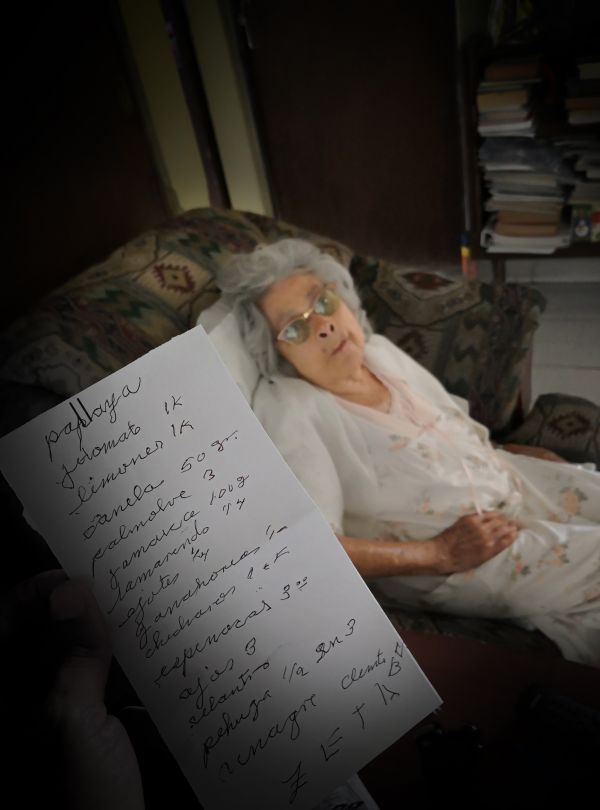 papaya
jitomate 1K
limones 1K
canela 50 gr.
palmolive 3
jamaica 100g
tamarindo 1/4
ejotes 1/4
zanahorias 1/2
chicharos 1/2 K
espinacas 3
ajos 3
cilantro
pechuga 1/2 en 3
vinagre clemente
Z E + A